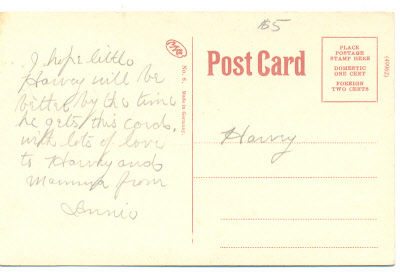 I hope little
Harvey will be
better by the time
he gets this cards.
with lots of love
to Harvey and
Mamma from
Bunnie
No. 6. Made in Germany
$5
Post Card
PLACE
POSTAGE
STAMP HERE
DOMESTIC
ONE CENT
FOREIGN
TWO CENTS
Harvy